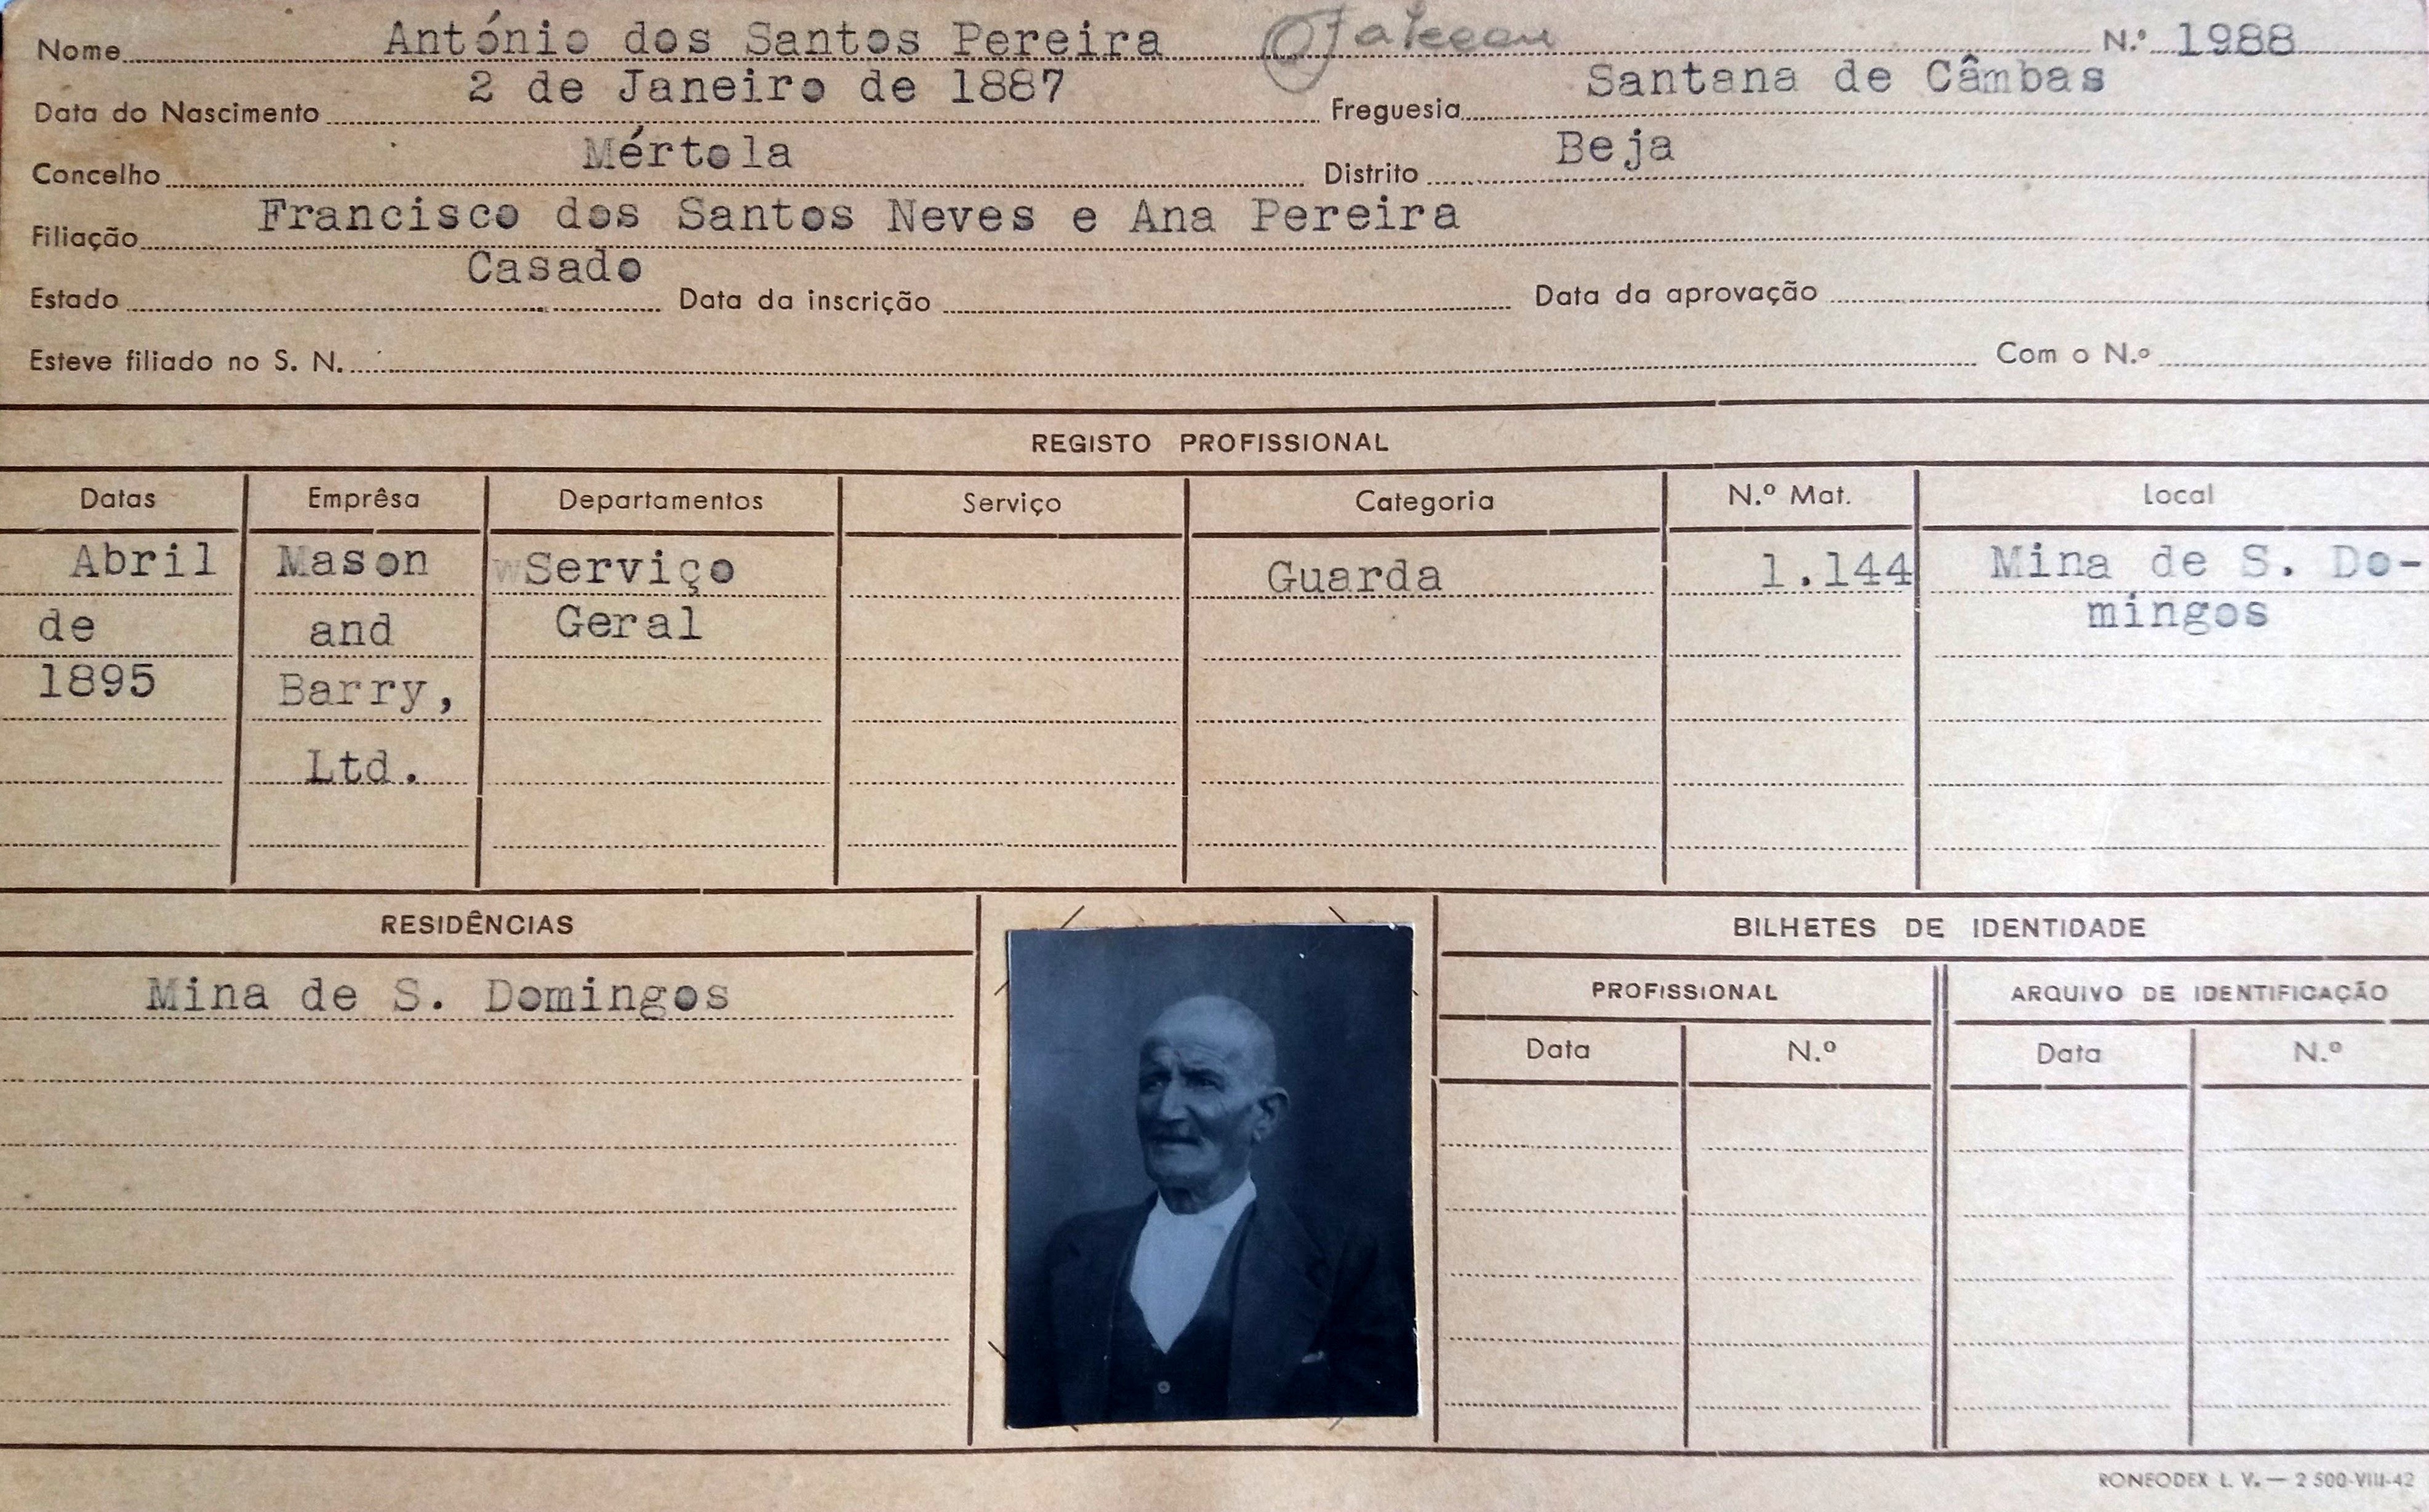 Nome António dos Santos Pereira Faleceu N.º 1988
Data do Nascimento 2 de Janeiro de 1887 Freguesia Santana de Câmbas
Concelho Mértola Distrito Beja
Filiação Francisco dos Santos Neves e Ana Pereira
Estado Casado Data da inscrição Data da aprovação
Esteve filiado no S. N. Com o N.º
REGISTO PROFISSIONAL
Datas Emprêsa Departamentos Serviço Categoria N.º Mat. Local
Abril Mason Serviço Guarda 1.144 Mina de S. Do-
de and Geral mingos
1895 Barry,
Ltd.
RESIDÊNCIAS BILHETES DE IDENTIDADE
Mina de S. Domingos PROFISSIONAL ARQUIVO DE IDENTIFICAÇÃO
Data N.º Data N.º
RONEODEX L. V. — 2 500-VIII-42